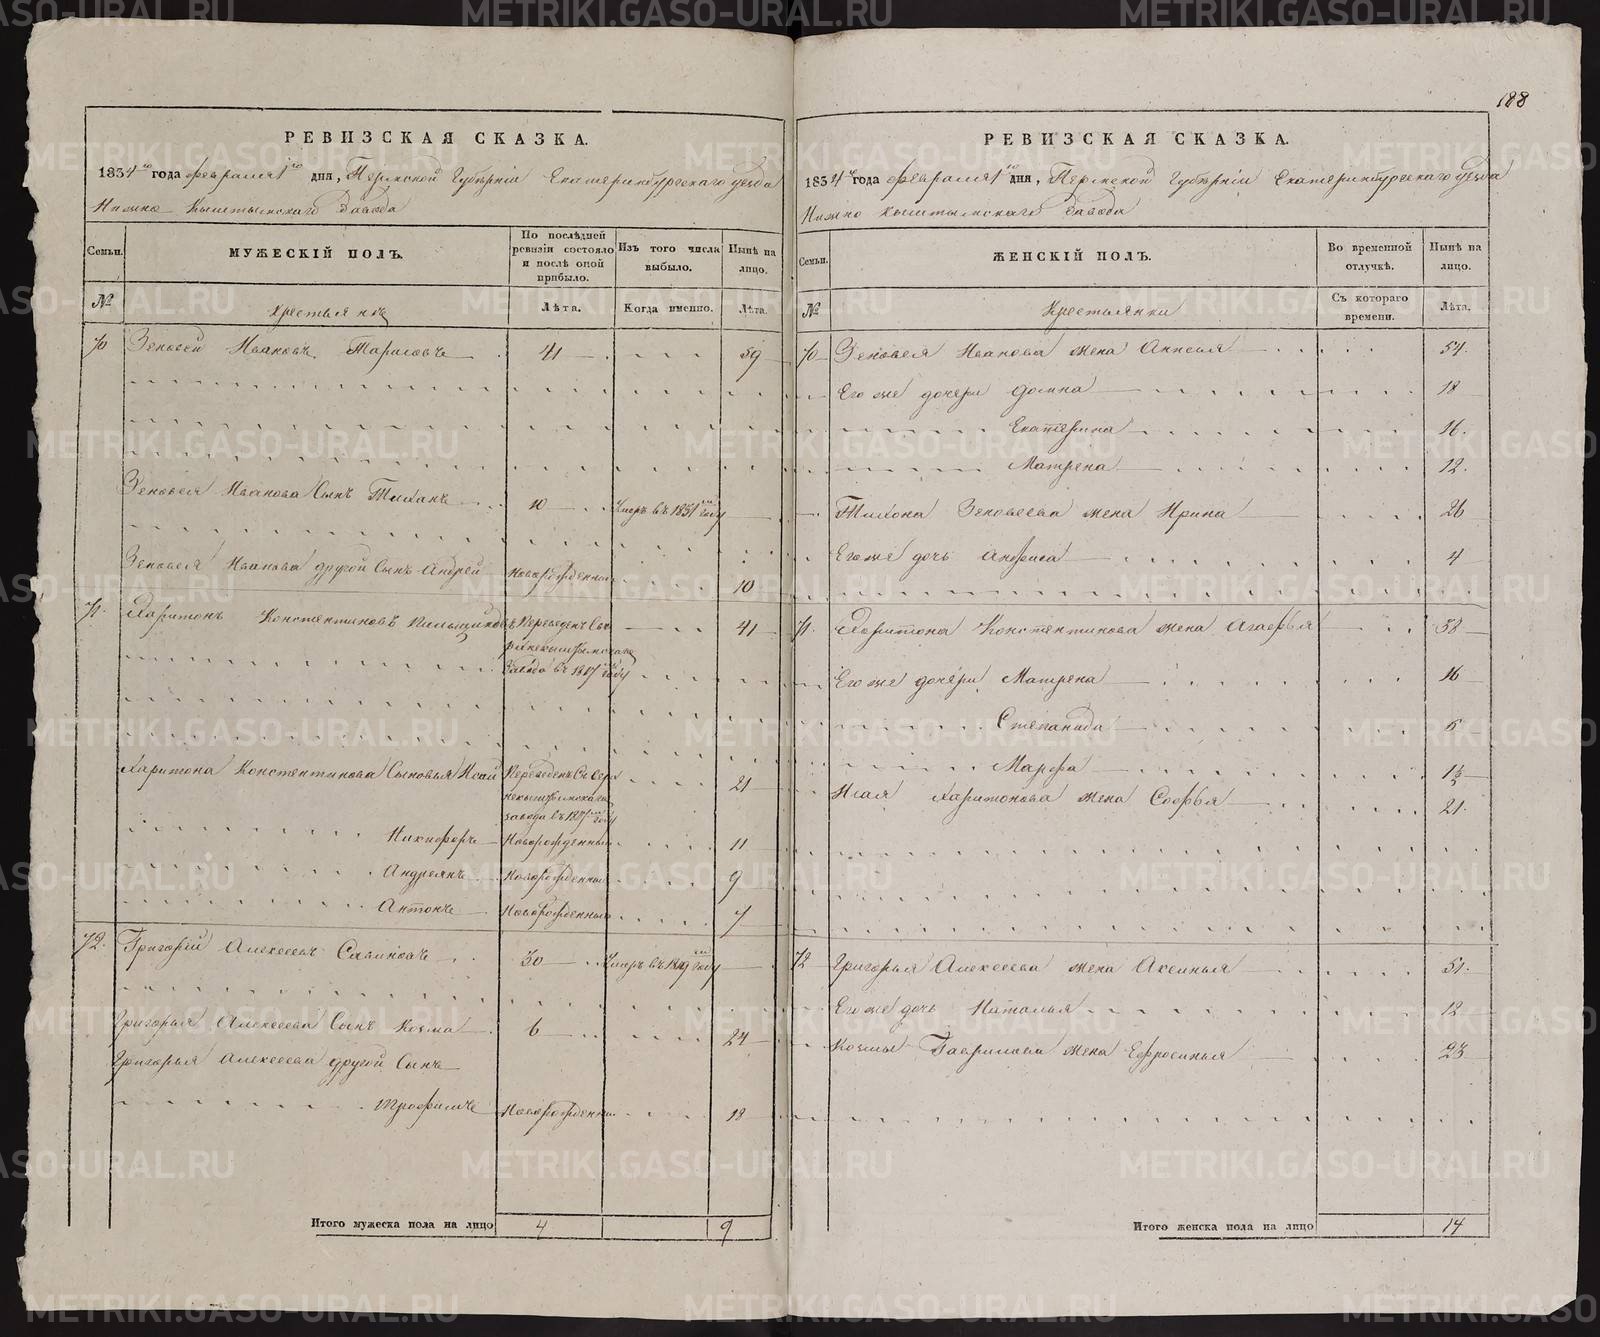 188
РЕВИЗСКАЯ СКАЗКА.
1834го года февраля 1го дня, Пермской Губѣрніи Екатеринбургскаго уезда
Нижно Кыштымскаго Завода
Семьи. МУЖЕСКІЙ ПОЛЪ. По послѣдней ревизіи состояло и послѣ оной прибыло. Изъ того числа выбыло. Нынѣ на лицо.
№ Крестьянѣ Лѣта. Когда именно. Лѣта.
70 Зеновей Ивановъ 41 59
Зеновея Иванова Сынъ Тихонъ 10 Умеръ въ 1831м году
Зеновея Иванова другой Сынъ Андрей новорожденный 10
71. Харитонъ Константиновъ Переведенъ съ Верхнекыштымскаго Завода въ 1817м году 41
Харитона Константинова Сыновья Исай Переведенъ съ Верхнекыштымскаго завода въ 1817м году 21
Никифоръ Новорожденный 11
Андреянъ Новорожденный 9
Антонъ Новорожденный 7
72. Григорий Алексеевъ 30 Умеръ въ 1819м году
Григорья Алексеева Сынъ Козма 6 24
Григорья Алексеева другой Сынъ
Трофимъ Новорожденный 18
Итого мужеска пола на лицо 4 9
РЕВИЗСКАЯ СКАЗКА.
1834го года февраля 1го дня, Пермской Губѣрніи Екатеринбургскаго уезда
Нижно Кыштымскаго Завода
Семьи. ЖЕНСКІЙ ПОЛЪ. Во временной отлучкѣ. Нынѣ на лицо.
№ Крестьянки Съ котораго времени. Лѣта.
70 Зеновея Иванова жена Анисья 54.
Его же дочери Домна 18
Екатерина 16.
Матрена 12.
Тихона Зеновеева жена Ирина 26
Его же дочь Анфиса 4
71. Харитона Константинова жена Агафья 38
Его же дочери Матрена 16
Степанида 5
Марфа 1½
Исая Харитонова жена Софья 21.
72 Григорья Алексеева жена Аксинья 51.
Его же дочь Наталья 12
Козмы Гаврилова жена Ефросинья 23
Итого женска пола на лицо 14
METRIKI.GASO-URAL.RU